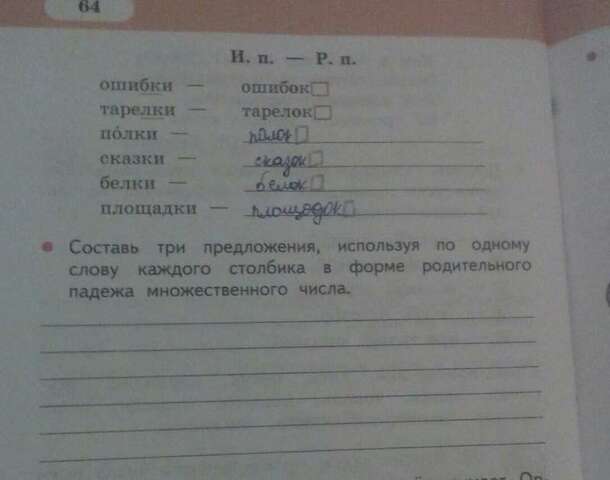 64
И. п. — Р. п.
ошибки — ошибок
тарелки — тарелок
по́лки — полок
сказки — сказок
белки — белок
площадки — площодок
Составь три предложения, используя по одному
слову каждого столбика в форме родительного
падежа множественного числа.